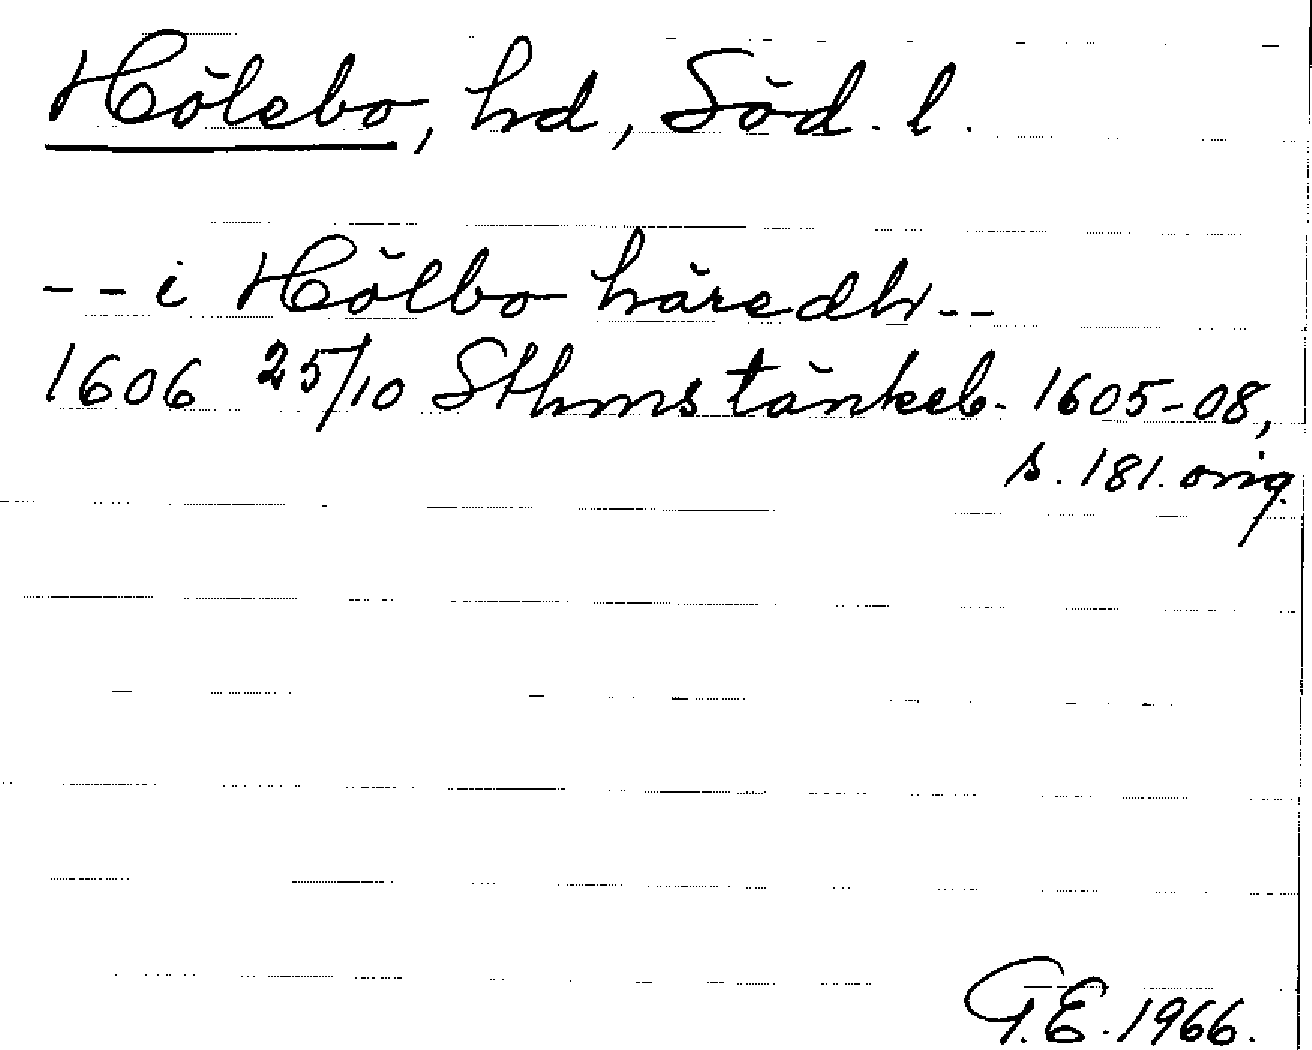 Hölebo, hd, Söd. l.
-- i Hölbo häredh --
1606 25/10 Sthms tänkeb. 1605-08,
s. 181. orig.
G.E. 1966.